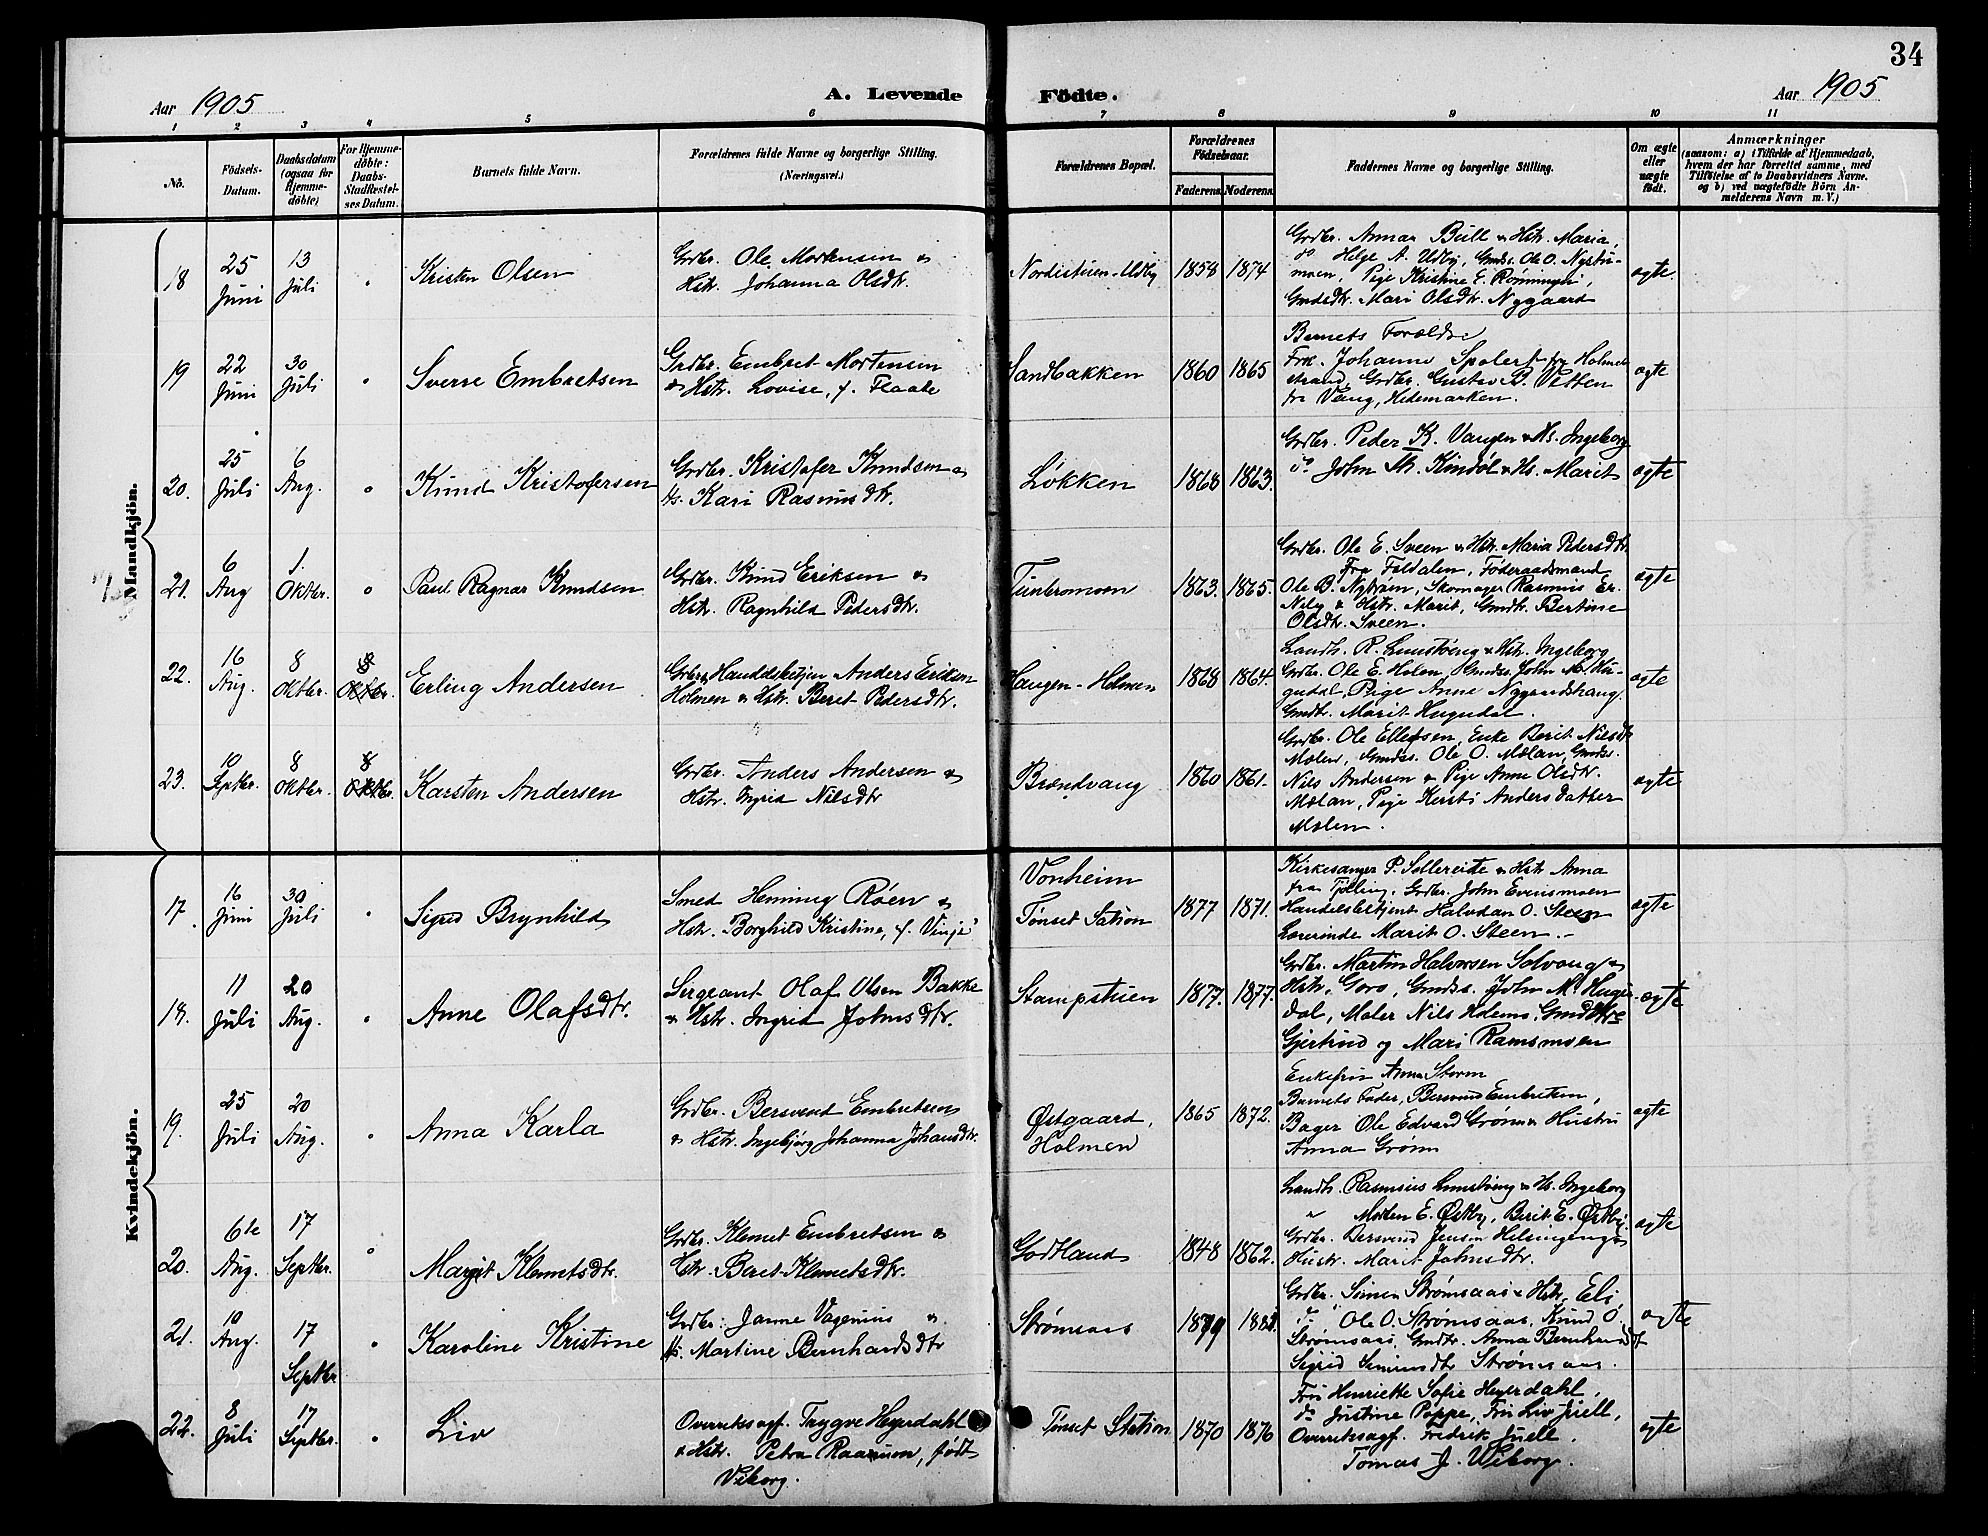 34
Aar 1905
A. Levende
Födte.
Aar 1905
1 2 3 4 5 6 7 8 9 10 11
No.
Födsels-Datum.
Daabsdatum (ogsaa for Hjemme-döbte)
For Hjemme-döbte: Daabs-Stadfæstel-ses Datum.
Barnets fulde Navn.
Forældrenes fulde Navne og borgerlige Stilling.
(Næringsvei.)
Forældrenes Bopæl.
Forældrenes Födselsaar.
Faderens. Moderens.
Faddernes Navne og borgerlige Stilling.
Om ægte eller uægte födt.
Anmærkninger
(saasom: a) i Tilfælde af Hjemmedaab,
hvem der har forrettet samme, med
Tilföielse af to Daabsvidners Navne,
og b) ved uægtefödte Börn An-
melderens Navn m. V.)
Mandkjön.
18 25 Juni 13 Juli " Kristen Olsen
Grdbr. Ole Mortensen &
Hstr. Johanna Olsdtr.
Nordistuen-Udby 1858 1874
Grdbr. Annar Bull & Hstr. Maria,
do Helge A. Udby, Gmds. Ole O. Nystu-
moen, Pige Kristine E. Rønningen,
Gmdsdtr. Mari Olsdtr. Nygaard
ægte.
19 22 Juni 30 Juli " Sverre Embretsen
Grdbr. Embret Mortensen
& Hstr. Lovise, f. Flaate
Sandbakken 1860 1865
Barnets Forældre
Frk. Johanne Spolert fra Holme-
strand, Grdbr. Gustav B. Vetten
fra Vang, Hedemarken.
ægte
20. 25 Juli 6 Aug. " Knud Kristofersen
Grdbr. Kristofer Knudsen &
Hs. Kari Rasmusdtr.
Løkken 1868 1863.
Grdbr. Peder K. Vangen & Hs. Ingeborg
do John Kindøl & Hs. Marit
ægte
21. 6 Aug 1. Oktbr. " Paul Ragnar Knudsen
Grdbr. Knud Eriksen &
Hstr. Ragnhild Pedersdtr.
Tunbromoen 1863. 1865.
Grdbr. Ole E. Sveen & Hstr. Maria Pedersdtr.
Fra Foldalen, Føderaadsmand
Ole B. Nytrøen, Skomager Rasmus Er.
Neby & Hstr. Marit, Gmdtr. Bertine
Olsdtr. Sveen.
ægte
22. 16 Aug. 8 Oktbr. 8 Oktbr. Erling Andersen
Grdbr. & Handelsbetjen Anders Eriksen
Holmen & Hstr. Beret Pedersdtr.
Haugen-Holmen 1868 1864.
Landh. R. Lunsteng & Hstr. Ingeborg
Grdbr. Ole E. Holen, Gmds. John M. Hu-
gudal, Pige Anne Nygaardshaug.
Gmdtr. Marit Hugudal.
ægte
23. 10 Septbr. 8 Oktbr. 8 Oktbr. Karsten Andersen
Grdbr. Anders Andersen &
Hstr. Ingrid Nilsdtr
Brændvang 1860 1861.
Grdbr. Ole Ellefsen, Enke Berit Nilsdtr
Molen, Gmds. Ole O. Mælan, Gmds.
Nils Andersen & Pige Anne Olsdtr.
Mælan, Pige Kersti Andersdatter
Mælen.
ægte
Kvindekjön.
17. 16 Juni 30 Juli " Sigrd Brynhild
Smed Henning Røen &
Hstr. Borghild Kristine, f. Vinje
Vonheim
Tønset Sation 1877 1871.
Kirkesanger P. Sollereite & Hstr Anna
fra Tjølling, Grdbr. John Evensmoen
Handelsbetjent Halvdan O. Steen
Lærerinde Marit O. Steen.
ægte
18. 11 Juli 20 Aug. " Anne Olafsdtr.
Sergeant Olaf Olsen Bakke
& Hstr. Ingrid Johnsdtr.
Stampstuen 1877. 1877.
Grdbr. Martin Halvorsen Solvang &
Hstr. Goro, Gmds. John M. Hugu-
dal, Maler Nils Holems, Gmdtre
Gjertrud og Mari Ramsmoen
ægte
19. 25 Juli 20 Aug. " Anna Karla
Grdbr. Bersvend Embretsen
& Hstr. Ingebjørg Johanna Johansdtr.
Østgaard,
Holmen 1865 1872.
Enkefru Anna Storm
Barnets Fader, Bersvend Embretsen,
Bager Ole Edvard Grønn & Hustru
Anna Grønn
ægte
20. 6te Aug. 17 Septbr. " Margit Klemetsdtr.
Grdbr. Klemet Embretsen &
Hstr. Beret Klemetsdtr.
Godtland 1848 1862.
Landh. Rasmus Lunsteng & Hs. Ingeborg
" Morten E. Østby, Berit E. Østby.
Grdbr. Bersvend Jensen Helsingeng &
Hustr. Marit Johnsdtr.
ægte
21. 10 Aug. 17 Septbr " Karoline Kristine
Grdbr. Janne Vagenius &
Hs. Martine Bernhardsdtr
Strømsaas 1879
Grdbr. Simen Strømsaas & Hstr. Eli
do Ole O. Strømsaas, Knud O.
Strømsaas, Gmdtr. Anna Bernhardsdt
Sigrid Simensdtr Strømsaas.
ægte
22. 8 Juli 17 Septbr. " Liv
Overretssagf. Trygve Heyerdahl
& Hstr. Petra Raanum, født
Viborg.
Tønset Station 1870 1876
Fru Henriette Sofie Heyerdahl,
do Justine Poppe, Fru Liv Juell,
Overretssagf. Fredrik Juell,
Tomas J. Wiborg.
ægte